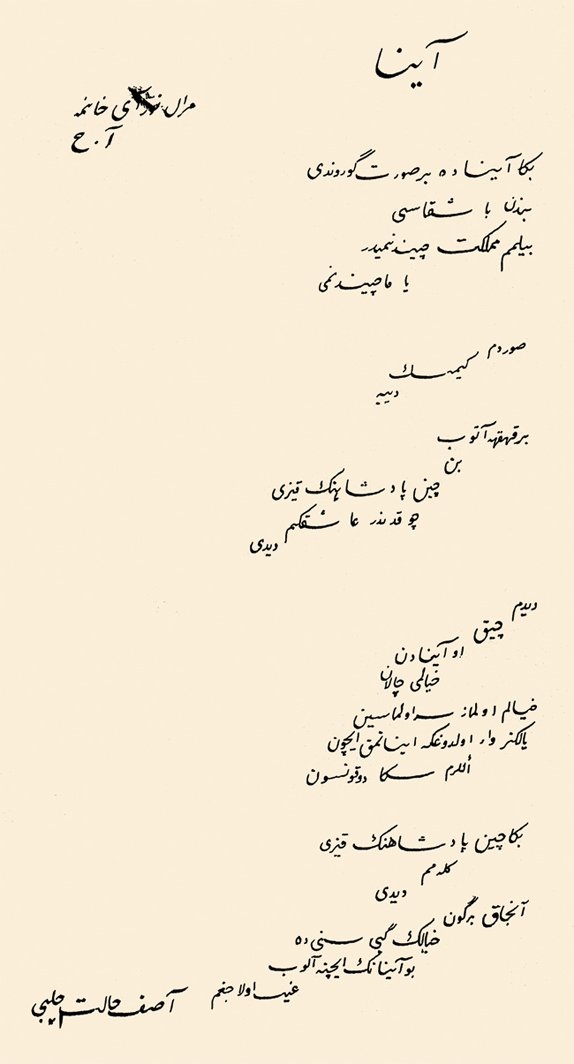 آینا
مرال نورای خانمه
آ.ح
بكا آیناده بر صورت گوروندی
بندن باشقاسی
بیلمم مملكت چیندنمیدر
یا ماچیندنمی
صوردم
كیمسك
دییه
بر قهقهه آتوب
بن
چین پادشاهنك قیزی
چوقدندر عاشقكم
دیدی
دیدم
چیق
او آینادن
خیالمی چالان
خیالم اولمازسه اولماسین
یالكز وار اولدوغكه اینانمق ایچون
أللرم سكا دوقونسون
بكا چین پادشاهنك قیزی
كلەمم
دیدی
آنجاق برگون
خیالك گبی سنی ده
بو آینانك ایچنه آلوب
غیب اولاجغم
آصف حالت چلبی